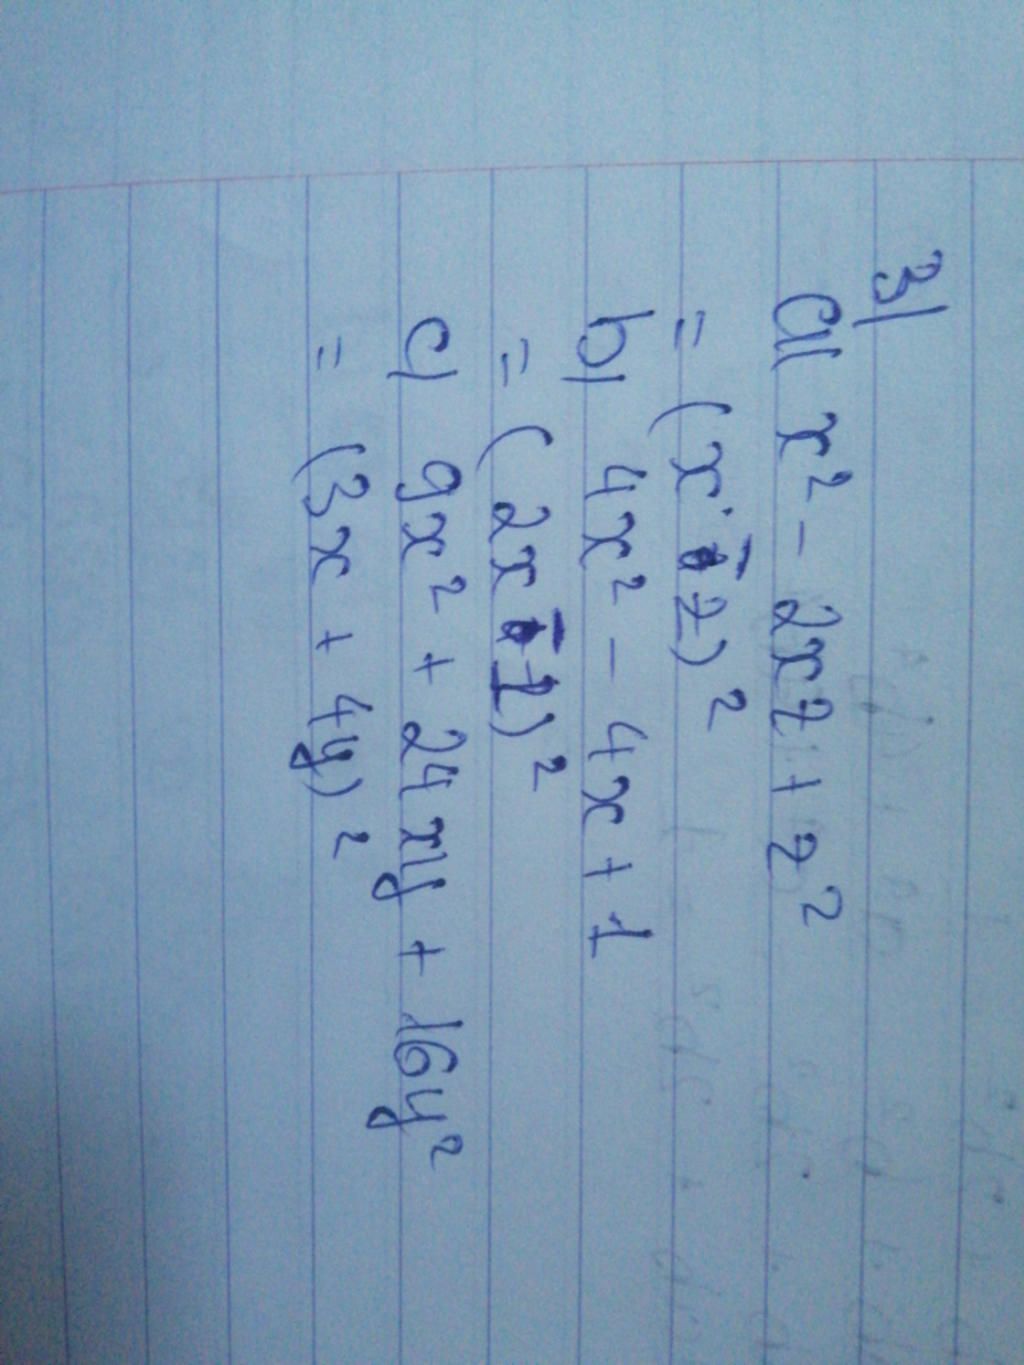 3)
a) x² - 2xz + z²
= (x - z)²
b) 4x² - 4x + 1
= (2x - 1)²
c) 9x² + 24xy + 16y²
= (3x + 4y)²